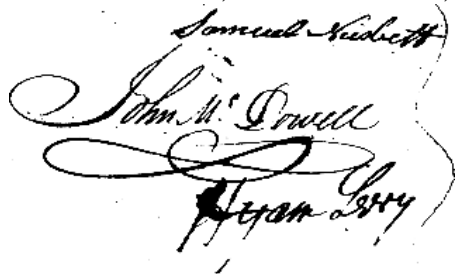 Samuel Nisbett
John Mc Dowell
Hyam Levy